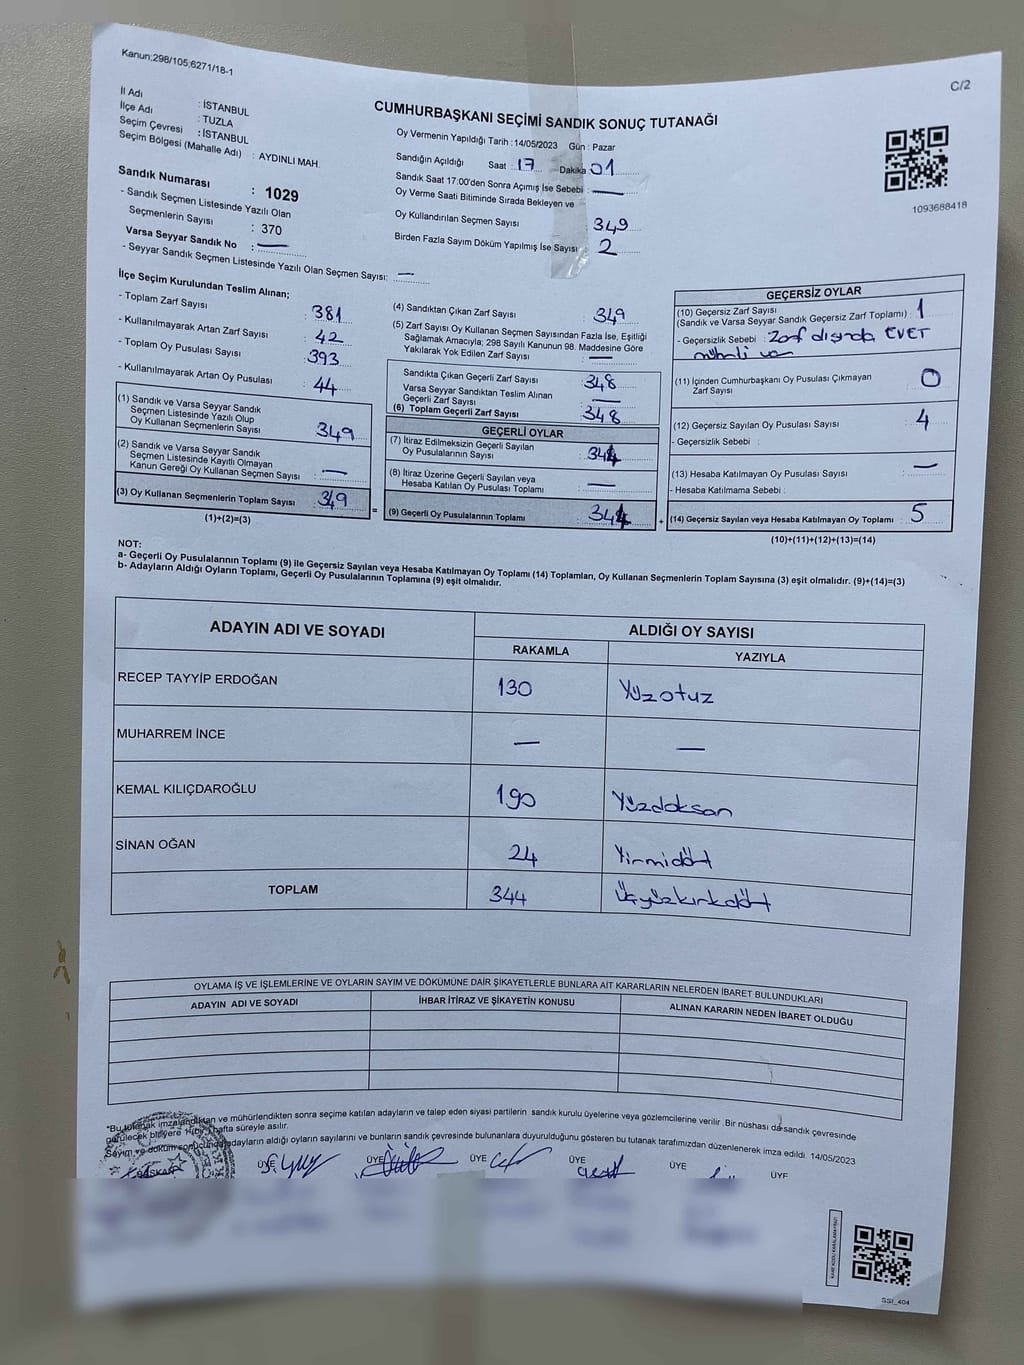 Kanun:298/105;6271/18-1
C/2
İl Adı : İSTANBUL
İlçe Adı : TUZLA
Seçim Çevresi : İSTANBUL
Seçim Bölgesi (Mahalle Adı) : AYDINLI MAH.
Sandık Numarası : 1029
- Sandık Seçmen Listesinde Yazılı Olan
Seçmenlerin Sayısı : 370
Varsa Seyyar Sandık No : —
- Seyyar Sandık Seçmen Listesinde Yazılı Olan Seçmen Sayısı: —
CUMHURBAŞKANI SEÇİMİ SANDIK SONUÇ TUTANAĞI
Oy Vermenin Yapıldığı Tarih : 14/05/2023 Gün : Pazar
Sandığın Açıldığı Saat : 17 Dakika : 01
Sandık Saat 17:00'den Sonra Açımış İse Sebebi : —
Oy Verme Saati Bitiminde Sırada Bekleyen ve
Oy Kullandırılan Seçmen Sayısı : 349
Birden Fazla Sayım Döküm Yapılmış İse Sayısı : 2
1093688418
İlçe Seçim Kurulundan Teslim Alınan;
- Toplam Zarf Sayısı : 381
- Kullanılmayarak Artan Zarf Sayısı : 42
- Toplam Oy Pusulası Sayısı : 393
- Kullanılmayarak Artan Oy Pusulası : 44
(1) Sandık ve Varsa Seyyar Sandık
Seçmen Listesinde Yazılı Olup
Oy Kullanan Seçmenlerin Sayısı : 349
(2) Sandık ve Varsa Seyyar Sandık
Seçmen Listesinde Kayıtlı Olmayan
Kanun Gereği Oy Kullanan Seçmen Sayısı : —
(3) Oy Kullanan Seçmenlerin Toplam Sayısı : 349
(1)+(2)=(3)
=
(4) Sandıktan Çıkan Zarf Sayısı : 349
(5) Zarf Sayısı Oy Kullanan Seçmen Sayısından Fazla İse, Eşitliği
Sağlamak Amacıyla; 298 Sayılı Kanunun 98. Maddesine Göre
Yakılarak Yok Edilen Zarf Sayısı : —
Sandıkta Çıkan Geçerli Zarf Sayısı : 348
Varsa Seyyar Sandıktan Teslim Alınan
Geçerli Zarf Sayısı : —
(6) Toplam Geçerli Zarf Sayısı : 348
GEÇERLİ OYLAR
(7) İtiraz Edilmeksizin Geçerli Sayılan
Oy Pusulalarının Sayısı : 344
(8) İtiraz Üzerine Geçerli Sayılan veya
Hesaba Katılan Oy Pusulası Toplamı : —
(9) Geçerli Oy Pusulalarının Toplamı : 344
+
GEÇERSİZ OYLAR
(10) Geçersiz Zarf Sayısı
(Sandık ve Varsa Seyyar Sandık Geçersiz Zarf Toplamı) : 1
- Geçersizlik Sebebi : Zarf dışında EVET
mührü var
(11) İçinden Cumhurbaşkanı Oy Pusulası Çıkmayan
Zarf Sayısı : 0
(12) Geçersiz Sayılan Oy Pusulası Sayısı : 4
- Geçersizlik Sebebi :
(13) Hesaba Katılmayan Oy Pusulası Sayısı : —
- Hesaba Katılmama Sebebi :
(14) Geçersiz Sayılan veya Hesaba Katılmayan Oy Toplamı : 5
(10)+(11)+(12)+(13)=(14)
NOT:
a- Geçerli Oy Pusulalarının Toplamı (9) ile Geçersiz Sayılan veya Hesaba Katılmayan Oy Toplamı (14) Toplamları, Oy Kullanan Seçmenlerin Toplam Sayısına (3) eşit olmalıdır. (9)+(14)=(3)
b- Adayların Aldığı Oyların Toplamı, Geçerli Oy Pusulalarının Toplamına (9) eşit olmalıdır.
ADAYIN ADI VE SOYADI
ALDIĞI OY SAYISI
RAKAMLA YAZIYLA
RECEP TAYYİP ERDOĞAN 130 Yüzotuz
MUHARREM İNCE — —
KEMAL KILIÇDAROĞLU 190 Yüzdoksan
SİNAN OĞAN 24 Yirmidört
TOPLAM 344 Üçyüzkırkdört
OYLAMA İŞ VE İŞLEMLERİNE VE OYLARIN SAYIM VE DÖKÜMÜNE DAİR ŞİKAYETLERLE BUNLARA AİT KARARLARIN NELERDEN İBARET BULUNDUKLARI
ADAYIN ADI VE SOYADI İHBAR İTİRAZ VE ŞİKAYETİN KONUSU ALINAN KARARIN NEDEN İBARET OLDUĞU
"Bu tutanak imzalandıktan ve mühürlendikten sonra seçime katılan adayların ve talep eden siyasi partilerin sandık kurulu üyelerine veya gözlemcilerine verilir. Bir nüshası da sandık çevresinde
görülecek bir yere 1 (bir) hafta süreyle asılır.
Sayım ve döküm sonucunda adayların aldığı oyların sayılarını ve bunların sandık çevresinde bulunanlara duyurulduğunu gösteren bu tutanak tarafımızdan düzenlenerek imza edildi. 14/05/2023
BAŞKAN ÜYE ÜYE ÜYE ÜYE ÜYE ÜYE
SSI_404